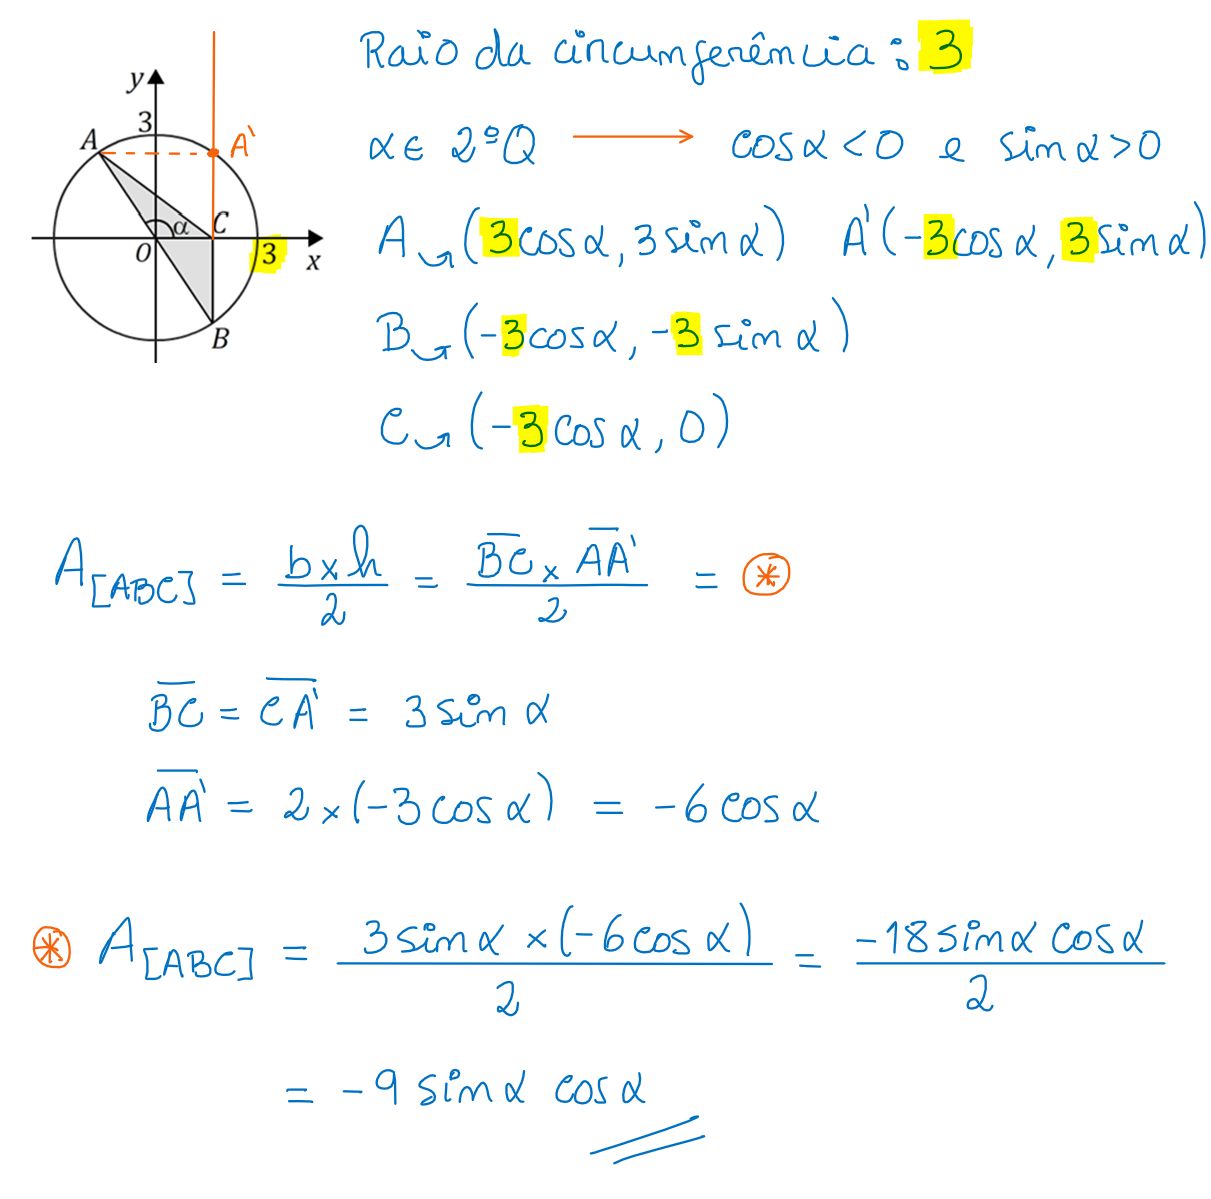 Raio da circunferência: 3
y
3
A
A'
α
C
O
3
x
B
α ∈ 2ºQ → cosα < 0 e sinα > 0
A ↪ (3cosα, 3sinα) A'(-3cosα, 3sinα)
B ↪ (-3cosα, -3sinα)
C ↪ (-3cosα, 0)
A[ABC] = b×h/2 = B̅C̅ × A̅A̅'/2 = ⊛
B̅C̅ = C̅A̅' = 3sinα
A̅A̅' = 2×(-3cosα) = -6cosα
⊛ A[ABC] = 3sinα × (-6cosα)/2 = -18sinα cosα/2
= -9sinα cosα